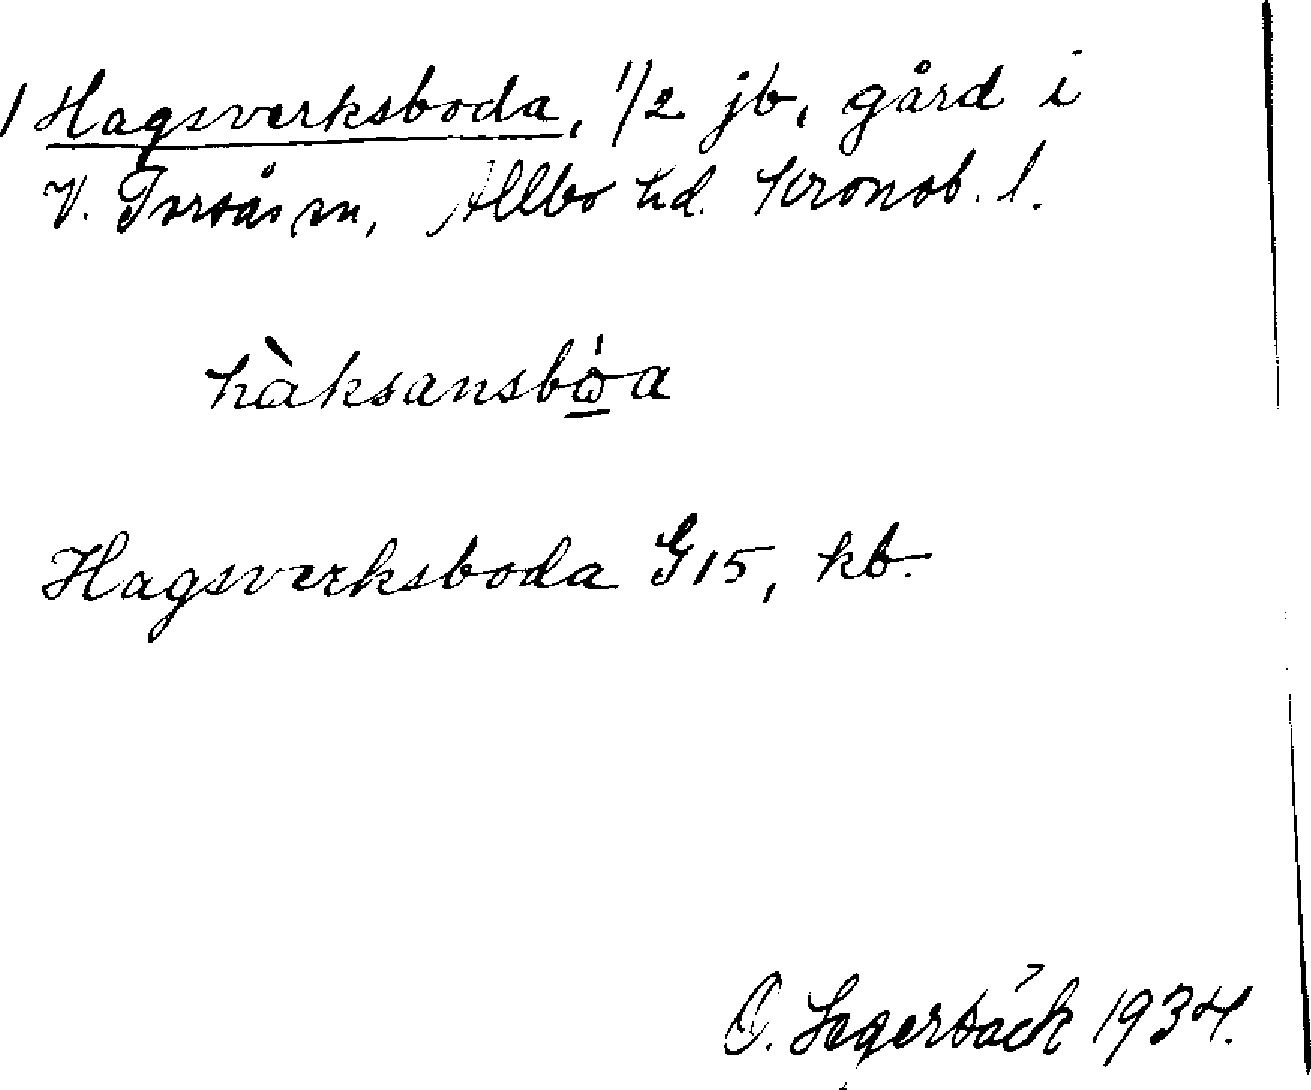 1 Hagsverksboda, 1/2 jb, gård i
V. Torsås sn, Allbo hd. Kronob. l.
hàksansbώ̲a
Hagsverksboda G15, kb.
O. 1934.